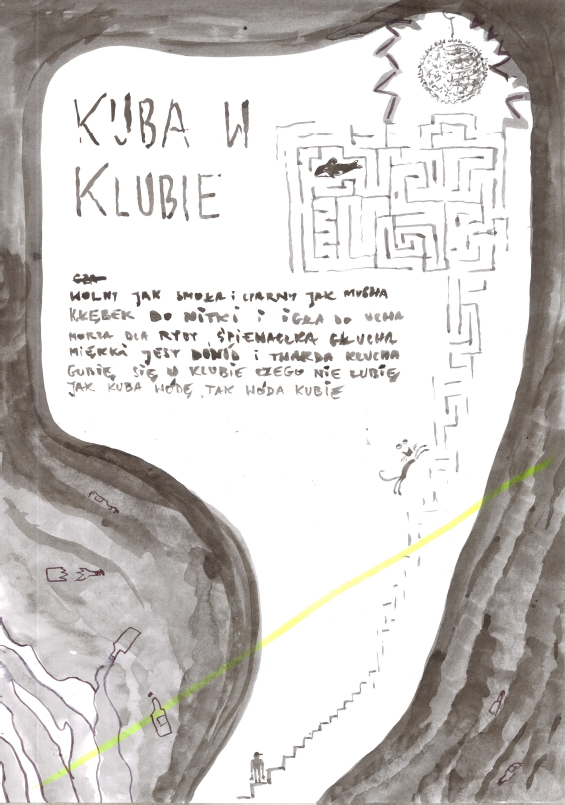 KUBA W
KLUBIE
WOLNY JAK SMOŁA i CZARNY JAK MUCHA
KŁĘBEK DO NITKI i iGŁA DO UCHA
MORZA DLA RYBY, ŚPIEWACZKA GŁUCHA
MIĘKKI JEST DOWÓD i TWARDA KLUCHA
GUBIĘ SIĘ W KLUBIE CZEGO NIE LUBIĘ
JAK KUBA WODĘ, TAK WODA KUBIE